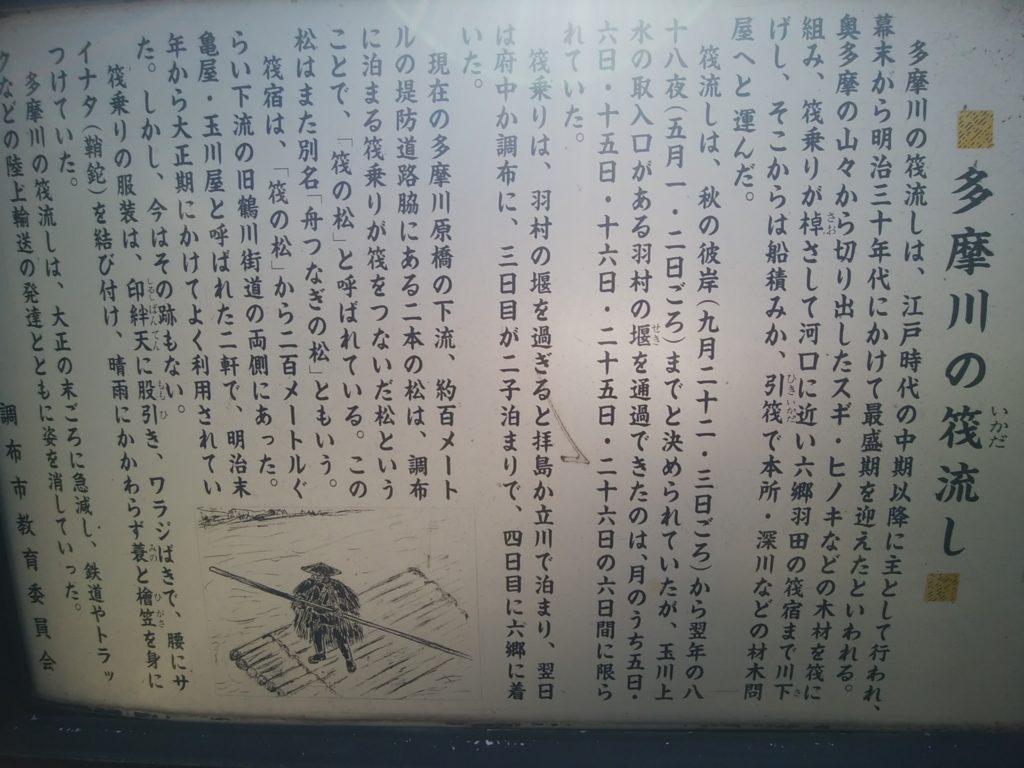 多摩川の筏流し
いかだ
多摩川の筏流しは、江戸時代の中期以降に主として行われ、
幕末から明治三十年代にかけて最盛期を迎えたといわれる。
奥多摩の山々から切り出したスギ・ヒノキなどの木材を筏に
組み、筏乗りが棹さして河口に近い六郷羽田の筏宿まで川下
さお
さ
げし、そこからは船積みか、引筏で本所・深川などの材木問
ひきいかだ
屋へと運んだ。
筏流しは、秋の彼岸(九月二十二・三日ごろ)から翌年の八
十八夜(五月一・二日ごろ)までと決められていたが、玉川上
水の取入口がある羽村の堰を通過できたのは、月のうち五日・
せき
六日・十五日・十六日・二十五日・二十六日の六日間に限ら
れていた。
筏乗りは、羽村の堰を過ぎると拝島か立川で泊まり、翌日
は府中か調布に、三日目が二子泊まりで、四日目に六郷に着
いた。
現在の多摩川原橋の下流、約百メート
ルの堤防道路脇にある二本の松は、調布
に泊まる筏乗りが筏をつないだ松という
ことで、「筏の松」と呼ばれている。この
松はまた別名「舟つなぎの松」ともいう。
筏宿は、「筏の松」から二百メートルぐ
らい下流の旧鶴川街道の両側にあった。
亀屋・玉川屋と呼ばれた二軒で、明治末
年から大正期にかけてよく利用されてい
た。しかし、今はその跡もない。
筏乗りの服装は、印絆天に股引き、ワラジばきで、腰にサ
しるしばんてん
ももひ
イナタ(鞘鉈)を結び付け、晴雨にかかわらず蓑と檜笠を身に
みの
ひがさ
つけていた。
多摩川の筏流しは、大正の末ごろに急減し、鉄道やトラッ
クなどの陸上輸送の発達とともに姿を消していった。
調布市教育委員会